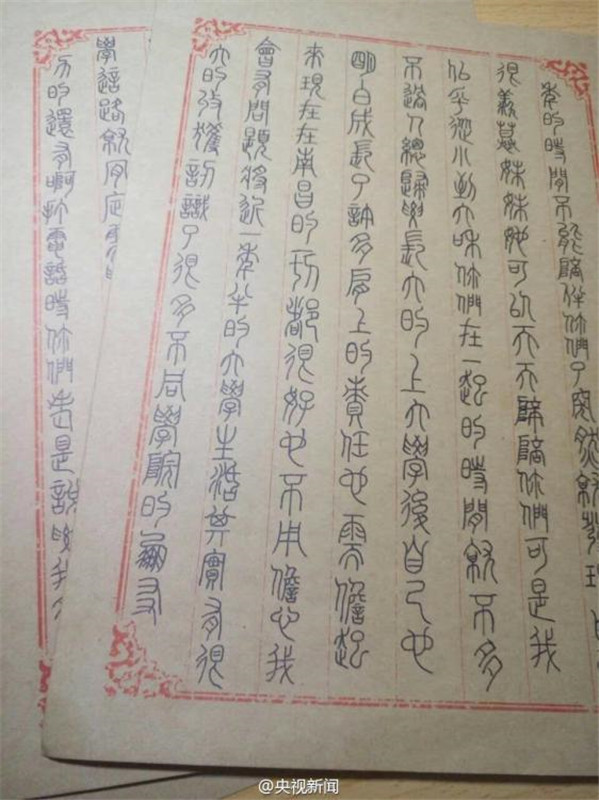 年的時間不能陪伴你們了突然就發現
很羨慕妹妹她可以天天陪陪你們可是我
似乎從小到大和你們在一起的時間就不多
不過人總歸要長大的上大學後自己也
明白成長了許多肩上的責任也需擔起
來現在在南昌的一切都很好也不用擔心我
會有問題將近一年半的大學生活其實有很
大的收穫認識了很多不同學院的朋友
學這路就有
方的還有啊打電話時你們老是說要我
@央视新闻